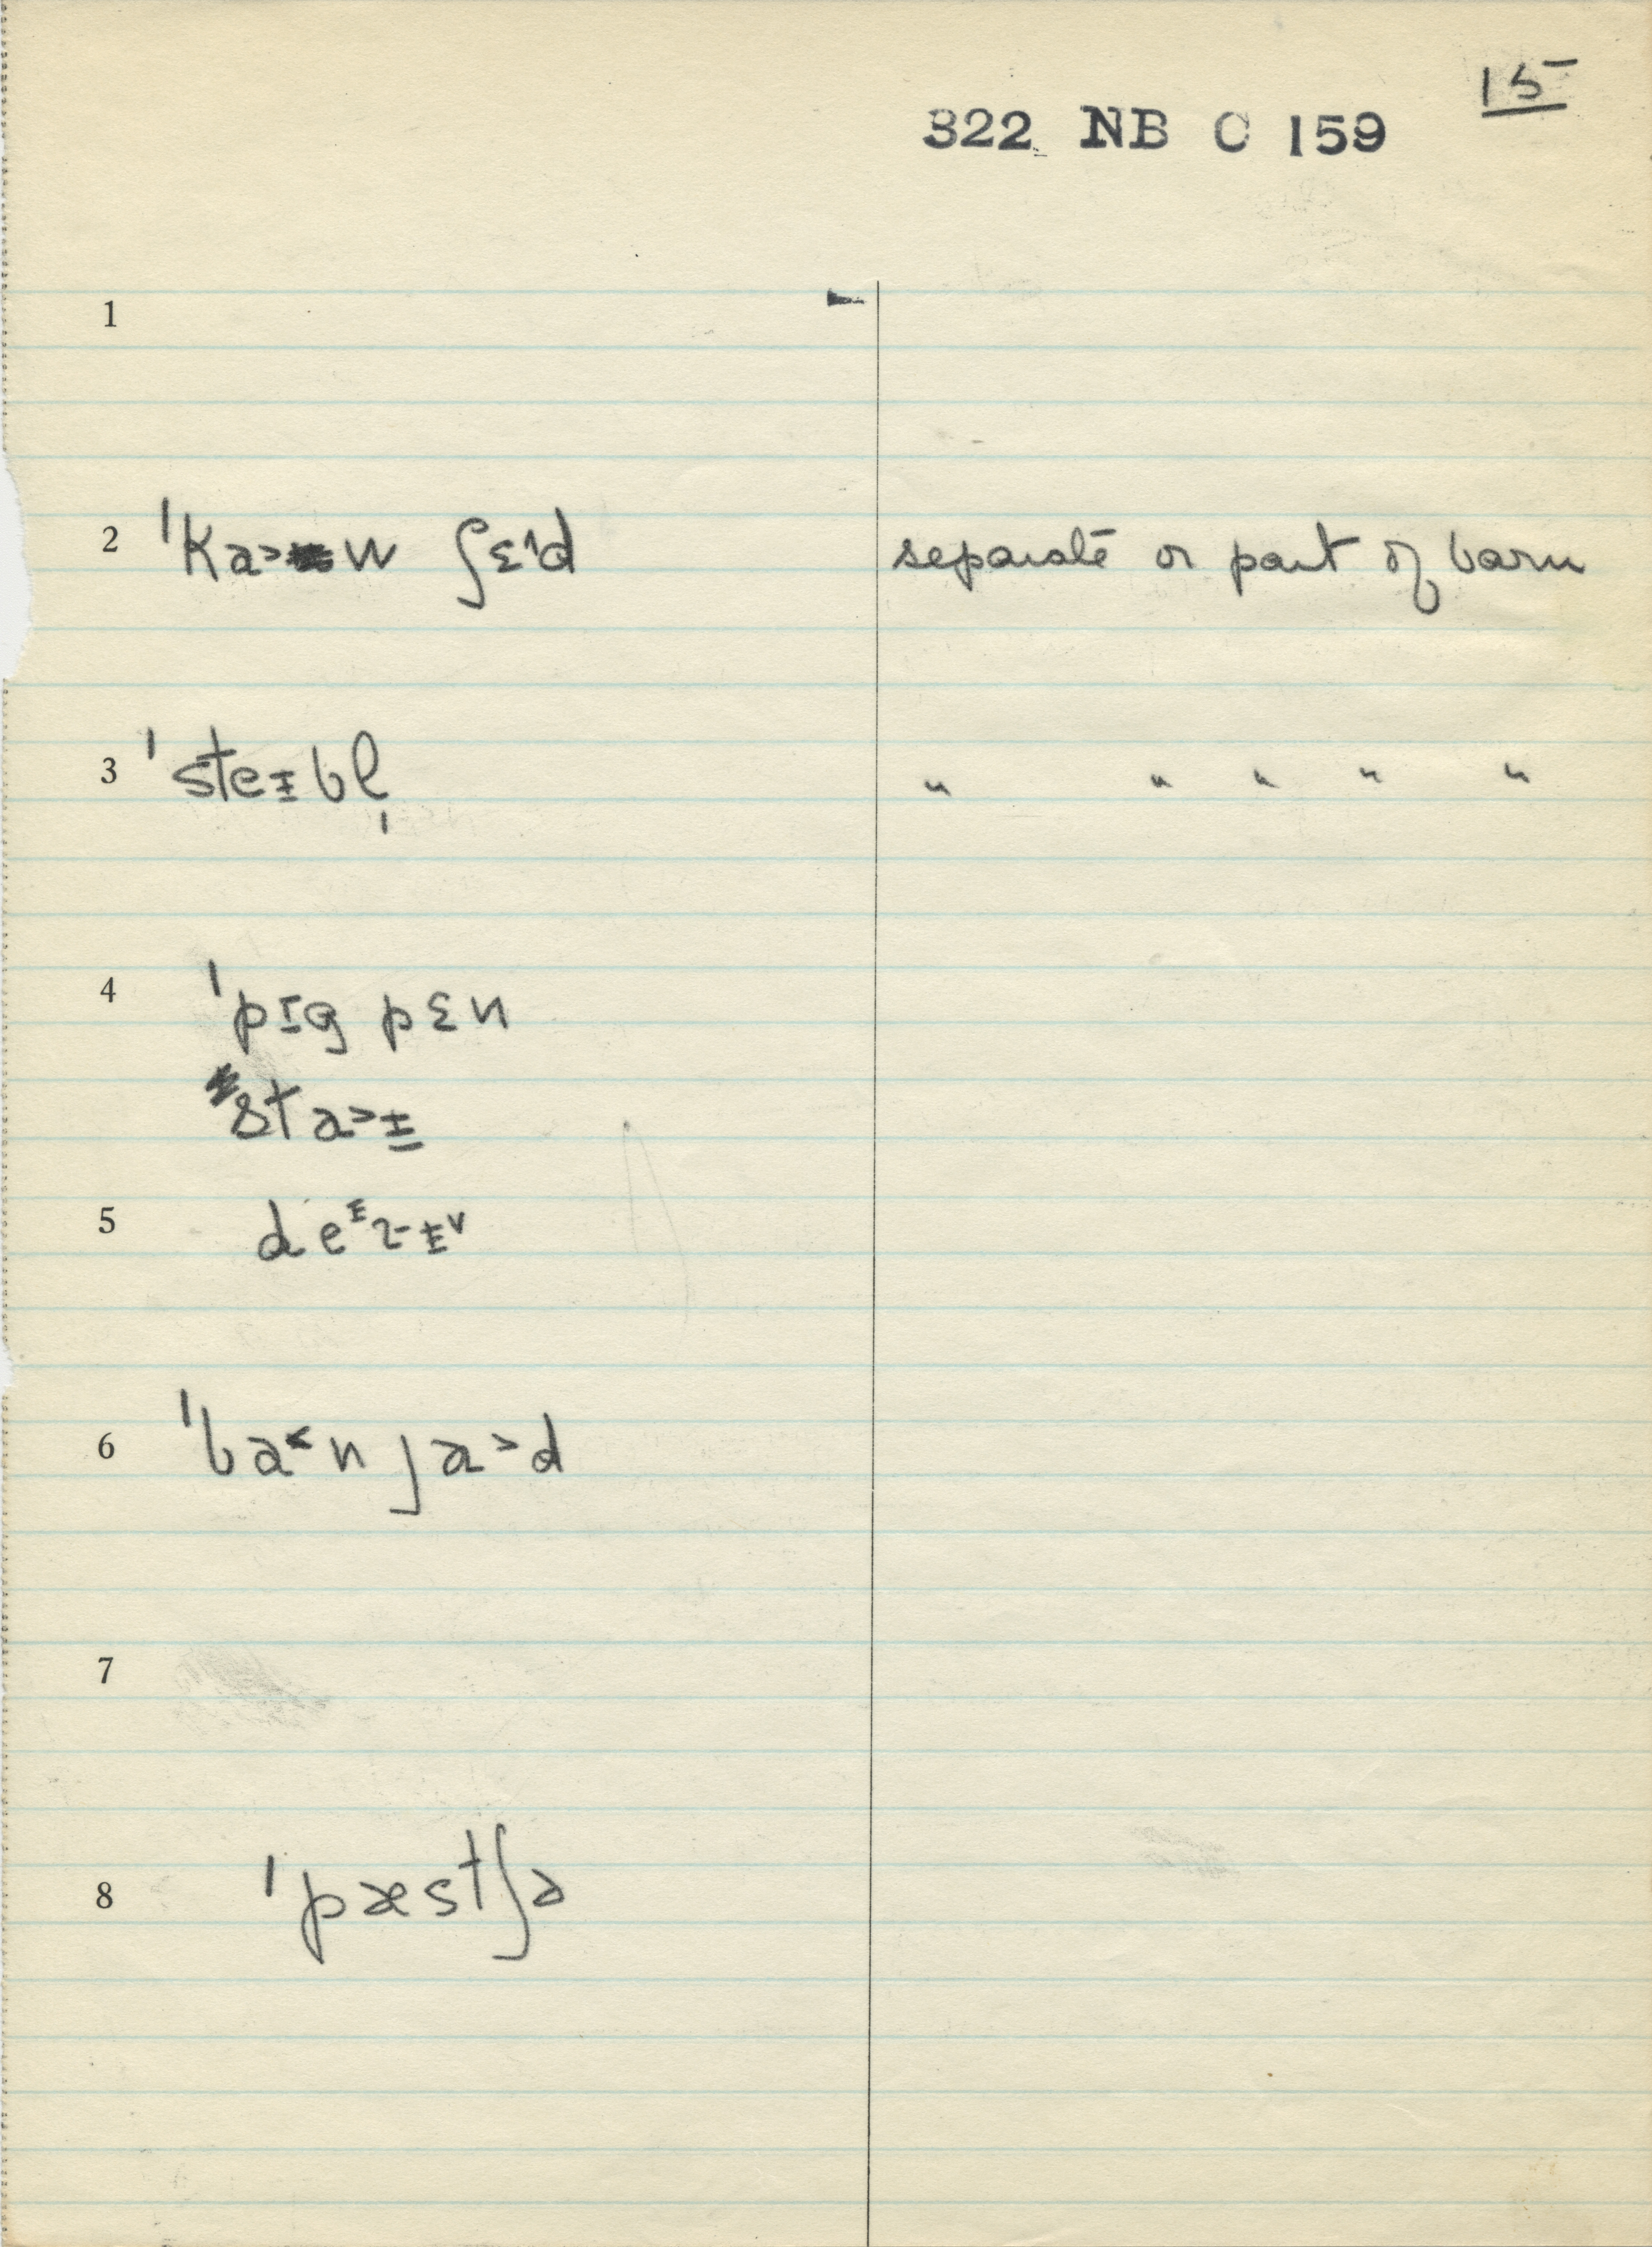 15
322 NB C 159
1
2 ˈka>w ʃɛ^d separate or part of barn
3 ˈsteɪbl̩ " " " " "
4 ˈpɪg pɛn
sta>ɪ
5 deᴵɹɪˇ
6 ˈba<n ja>d
7
8 ˈpæstʃə